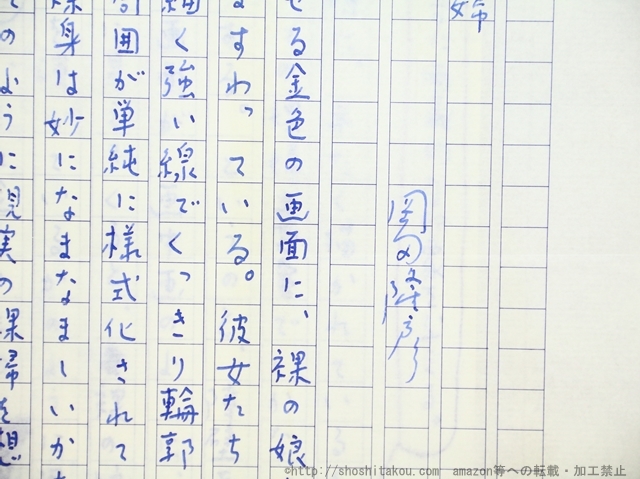 婦
岡田隆彦
せる金色の画面に、裸の娘
すわっている。彼女たち
細く強い線でくっきり輪郭
囲が単純に様式化されて
裸身は妙になまなましいかた
のように現実の裸婦を想
©http://shoshitakou.com amazon等への転載・加工禁止